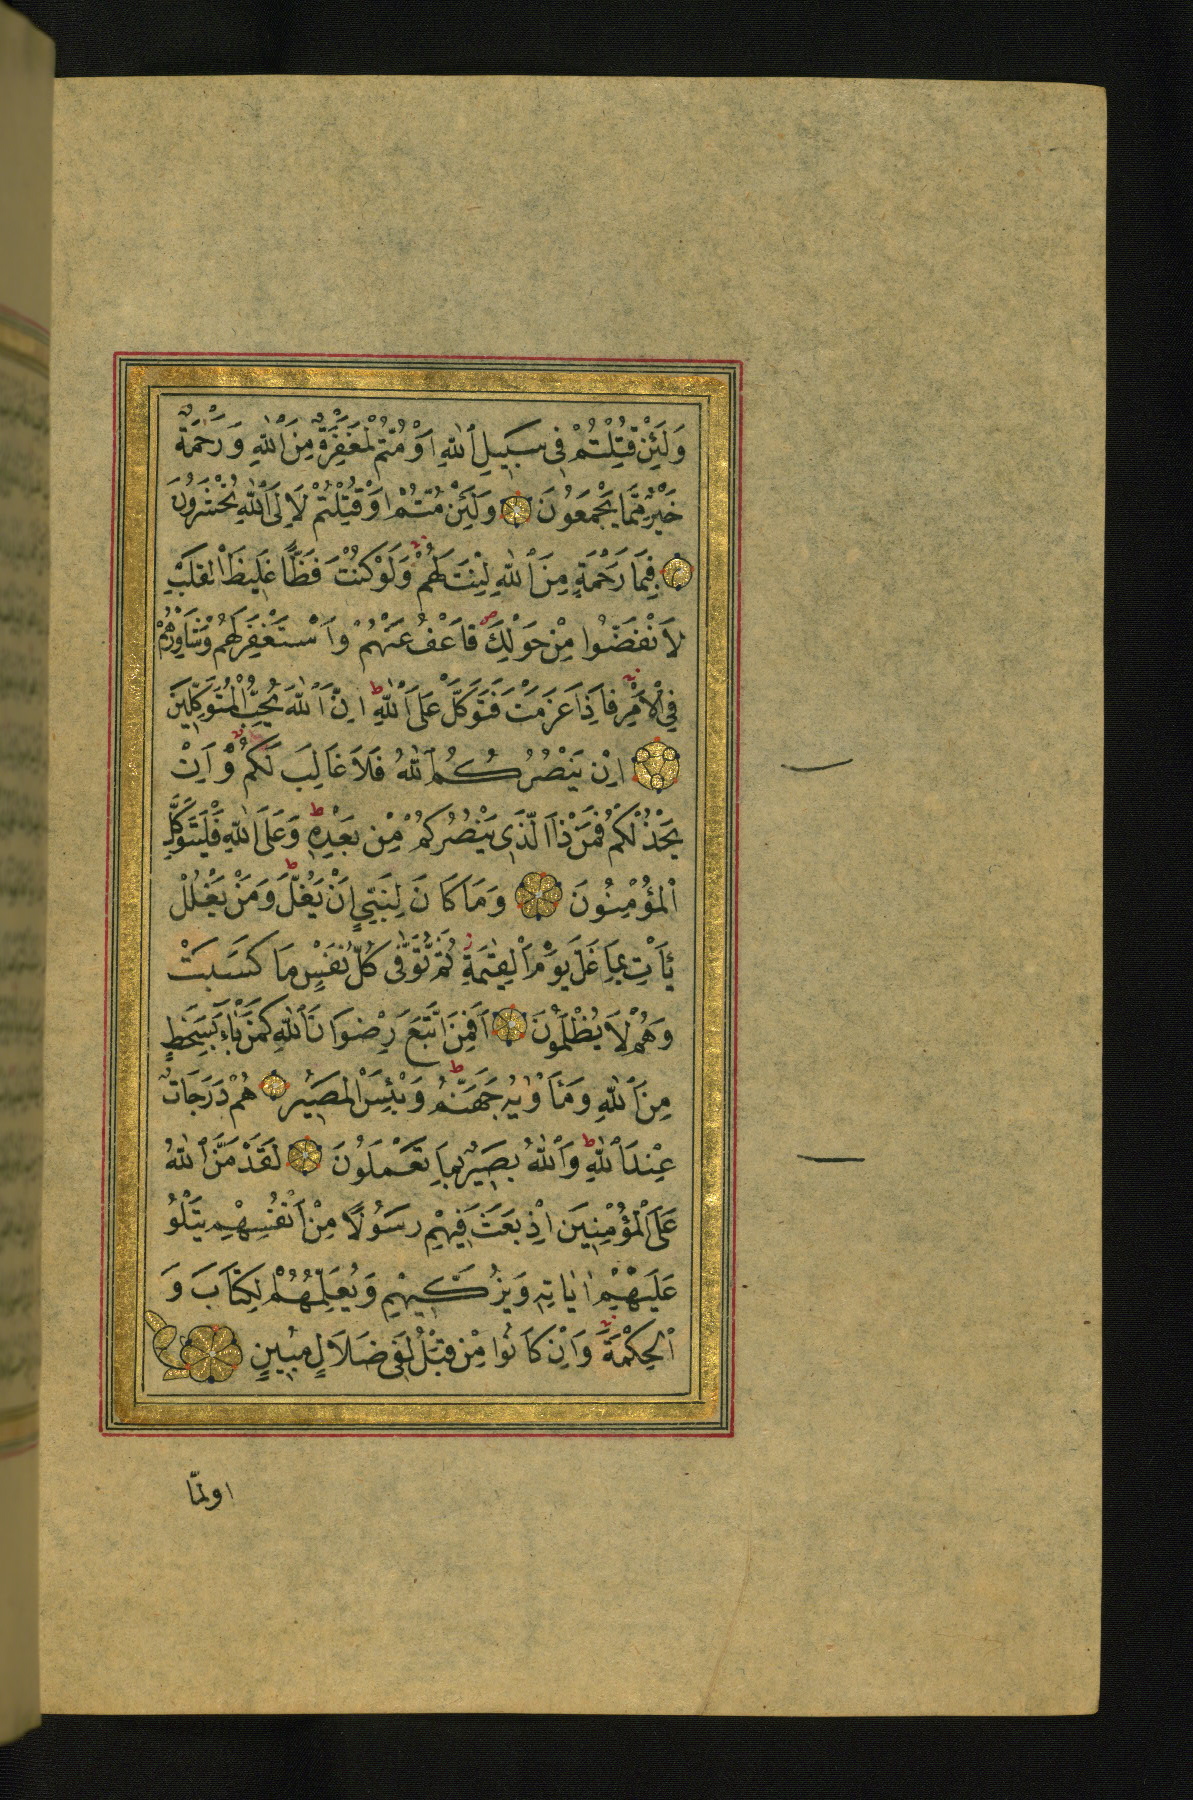 وَلَئِنْ قُتِلْتُمْ فِى سَبِيلِ ٱللّٰهِ اَوْ مُتُّمْ لَمَغْفِرَةٌ مِنَ ٱللّٰهِ وَرَحْمَةٌ
خَيْرٌ مِمَّا يَجْمَعُونَ وَلَئِنْ مُتُّمْ اَوْ قُتِلْتُمْ لَاِلَى ٱللّٰهِ تُحْشَرُونَ
فَبِمَا رَحْمَةٍ مِنَ ٱللّٰهِ لِنْتَ لَهُمْ وَلَوْ كُنْتَ فَظًّا غَلِيظَ ٱلْقَلْبِ
لَانْفَضُّوا مِنْ حَوْلِكَ فَاعْفُ عَنْهُمْ وَاسْتَغْفِرْ لَهُمْ وَشَاوِرْهُمْ
فِى ٱلْاَمْرِ فَاِذَا عَزَمْتَ فَتَوَكَّلْ عَلَى ٱللّٰهِ اِنَّ ٱللّٰهَ يُحِبُّ ٱلْمُتَوَكِّلِينَ
اِنْ يَنْصُرْكُمُ ٱللّٰهُ فَلَا غَالِبَ لَكُمْ وَاِنْ
يَخْذُلْكُمْ فَمَنْ ذَا ٱلَّذِى يَنْصُرُكُمْ مِنْ بَعْدِهِ وَعَلَى ٱللّٰهِ فَلْيَتَوَكَّلِ
ٱلْمُؤْمِنُونَ وَمَا كَانَ لِنَبِىٍّ اَنْ يَغُلَّ وَمَنْ يَغْلُلْ
يَأْتِ بِمَا غَلَّ يَوْمَ ٱلْقِيٰمَةِ ثُمَّ تُوَفّٰى كُلُّ نَفْسٍ مَا كَسَبَتْ
وَهُمْ لَا يُظْلَمُونَ اَفَمَنِ ٱتَّبَعَ رِضْوَانَ ٱللّٰهِ كَمَنْ بَاءَ بِسَخَطٍ
مِنَ ٱللّٰهِ وَمَأْوٰيهُ جَهَنَّمُ وَبِئْسَ ٱلْمَصِيرُ هُمْ دَرَجَاتٌ
عِنْدَ ٱللّٰهِ وَٱللّٰهُ بَصِيرٌ بِمَا يَعْمَلُونَ لَقَدْ مَنَّ ٱللّٰهُ
عَلَى ٱلْمُؤْمِنِينَ اِذْ بَعَثَ فِيهِمْ رَسُولًا مِنْ اَنْفُسِهِمْ يَتْلُو
عَلَيْهِمْ اٰيَاتِهِ وَيُزَكِّيهِمْ وَيُعَلِّمُهُمُ ٱلْكِتَابَ وَ
ٱلْحِكْمَةَ وَاِنْ كَانُوا مِنْ قَبْلُ لَفِى ضَلَالٍ مُبِينٍ
اولمّا